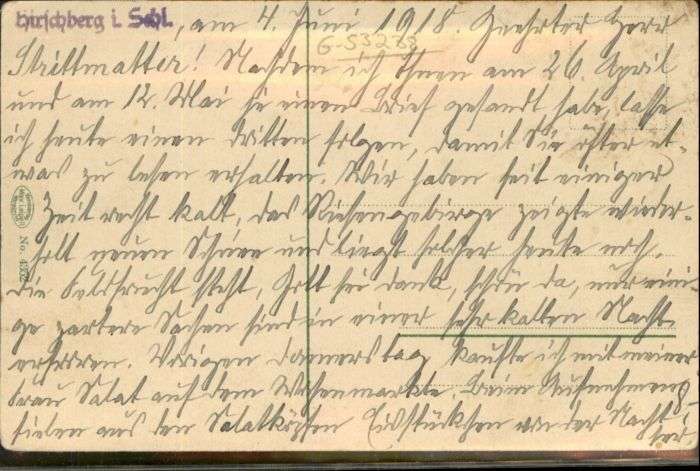 Hirschberg i. Schl., am 4. Juni 1918. Geehrter Herr
G-53283
Strittmatter! Nachdem ich Ihnen am 26. April
und am 12. Mai je einen Brief gesandt habe, lasse
ich heute einen dritten folgen, damit Sie öfter et-
was zu lesen erhalten. Wir haben seit einiger
Zeit recht kalt, das Riesengebirge zeigte wieder-
holt neuen Schnee und liegt solcher heute noch.
Die Feldfrucht steht, Gott sei dank, schön da, nur eini-
ge zartere Sachen sind in einer sehr kalten Nacht
erfroren. Vorigen Donnerstag kaufte ich mit meiner
Frau Salat auf dem Wochenmarkte. Beim Aufnehmen
fielen aus den Salatköpfen Eisstückchen von der Nacht
No.